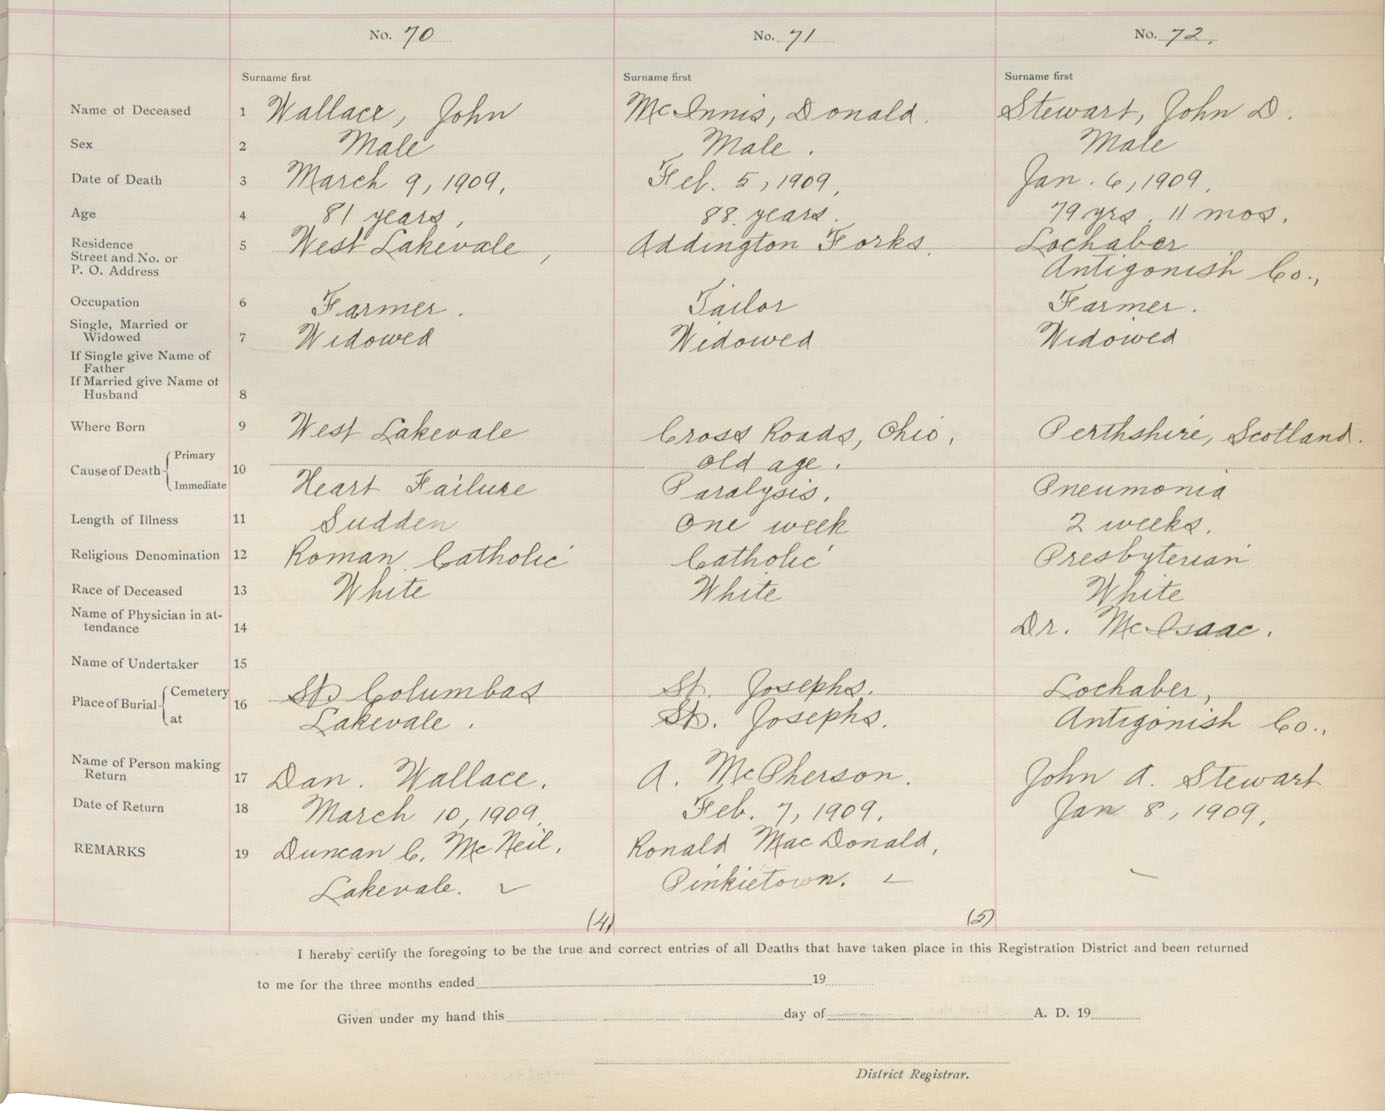 No. 70 No. 71 No. 72.
Surname first Surname first Surname first
Name of Deceased 1 Wallace, John McInnis, Donald. Stewart, John D.
Sex 2 Male Male. Male
Date of Death 3 March 9, 1909. Feb. 5, 1909. Jan. 6, 1909.
Age 4 81 years, 88 years. 79 yrs. 11 mos.
Residence 5 West Lakevale, Addington Forks. Lochaber
Street and No. or
P. O. Address Antigonish Co.,
Occupation 6 Farmer. Tailor Farmer.
Single, Married or
Widowed 7 Widowed Widowed Widowed
If Single give Name of
Father
If Married give Name of
Husband 8
Where Born 9 West Lakevale Cross Roads, Ohio, Perthshire, Scotland.
Cause of Death Primary 10 old age.
Immediate Heart Failure Paralysis. Pneumonia
Length of Illness 11 Sudden One week 2 weeks.
Religious Denomination 12 Roman Catholic Catholic Presbyterian
Race of Deceased 13 White White White
Name of Physician in at-
tendance 14 Dr. McIsaac.
Name of Undertaker 15
Place of Burial Cemetery 16 St. Columbas St. Josephs. Lochaber,
at Lakevale. St. Josephs. Antigonish Co.,
Name of Person making
Return 17 Dan. Wallace. A. McPherson. John A. Stewart
Date of Return 18 March 10, 1909. Feb. 7, 1909. Jan 8, 1909.
REMARKS 19 Duncan C. McNeil. Ronald MacDonald,
Lakevale. Pinkietown.
(4) (5)
I hereby certify the foregoing to be the true and correct entries of all Deaths that have taken place in this Registration District and been returned
to me for the three months ended 19
Given under my hand this day of A. D. 19
District Registrar.